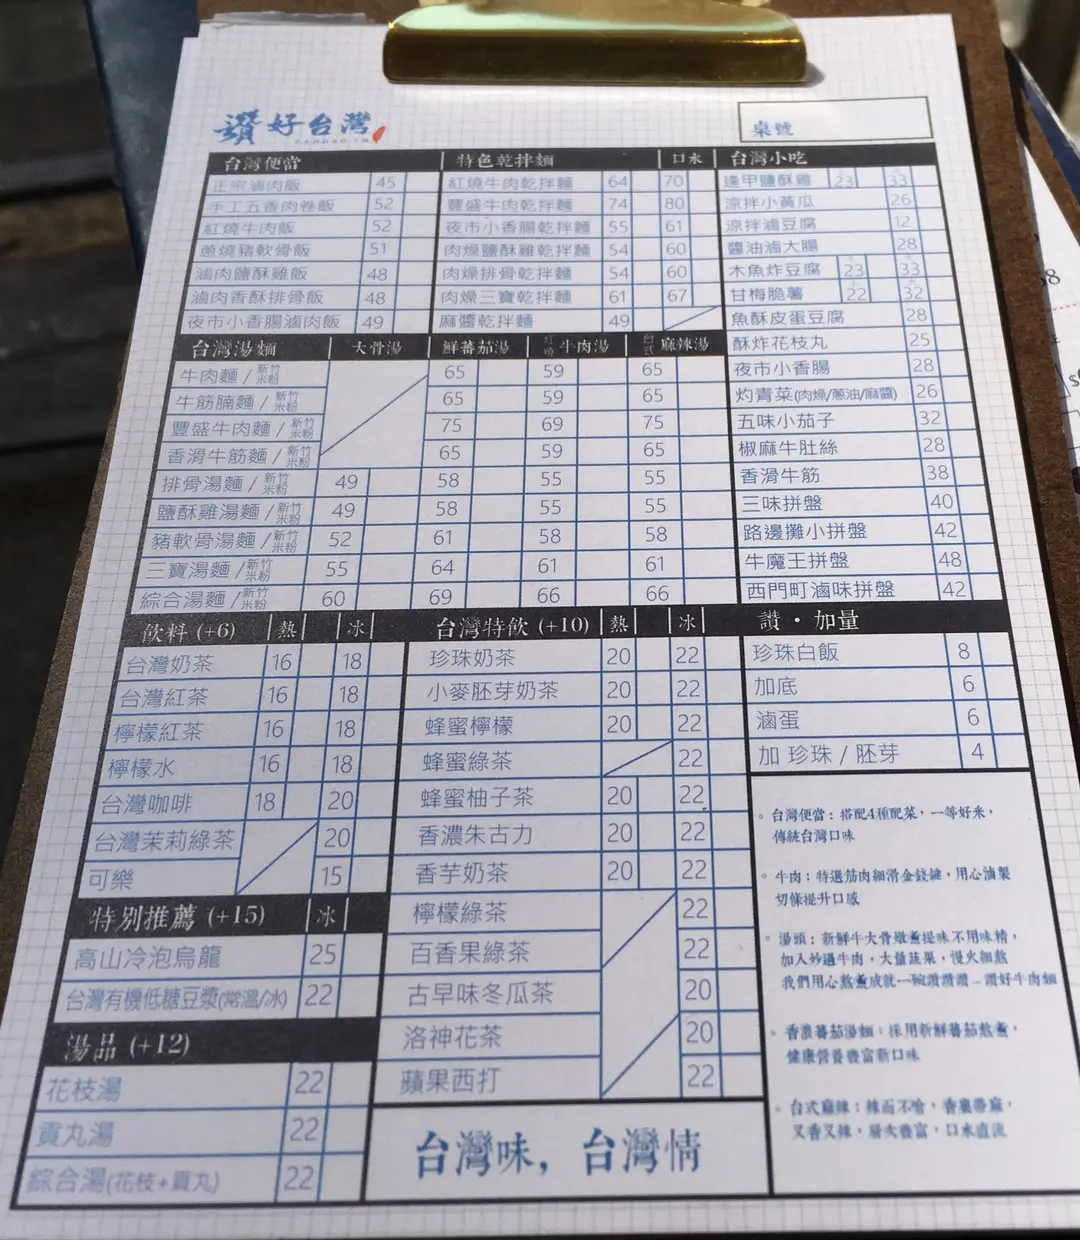 讚好台灣
桌號
台灣便當
正宗滷肉飯 45
手工五香肉卷飯 52
紅燒牛肉飯 52
蔥燒豬軟骨飯 51
滷肉鹽酥雞飯 48
滷肉香酥排骨飯 48
夜市小香腸滷肉飯 49
特色乾拌麵 口水
紅燒牛肉乾拌麵 64 70
豐盛牛肉乾拌麵 74 80
夜市小香腸乾拌麵 55 61
肉燥鹽酥雞乾拌麵 54 60
肉燥排骨乾拌麵 54 60
肉燥三寶乾拌麵 61 67
麻醬乾拌麵 49
台灣小吃
逢甲鹽酥雞 小 23 大 33
涼拌小黃瓜 26
涼拌滷豆腐 12
醬油滷大腸 28
木魚炸豆腐 小 23 大 33
甘梅脆薯 小 22 大 32
魚酥皮蛋豆腐 28
酥炸花枝丸 25
夜市小香腸 28
灼青菜(肉燥/蔥油/麻醬) 26
五味小茄子 32
椒麻牛肚絲 28
香滑牛筋 38
三味拼盤 40
路邊攤小拼盤 42
牛魔王拼盤 48
西門町滷味拼盤 42
台灣湯麵 大骨湯 鮮蕃茄湯 紅燒牛肉湯 台式麻辣湯
牛肉麵/新竹米粉 65 59 65
牛筋腩麵/新竹米粉 65 59 65
豐盛牛肉麵/新竹米粉 75 69 75
香滑牛筋麵/新竹米粉 65 59 65
排骨湯麵/新竹米粉 49 58 55 55
鹽酥雞湯麵/新竹米粉 49 58 55 55
豬軟骨湯麵/新竹米粉 52 61 58 58
三寶湯麵/新竹米粉 55 64 61 61
綜合湯麵/新竹米粉 60 69 66 66
飲料 (+6) 熱 冰
台灣奶茶 16 18
台灣紅茶 16 18
檸檬紅茶 16 18
檸檬水 16 18
台灣咖啡 18 20
台灣茉莉綠茶 20
可樂 15
特別推薦 (+15) 冰
高山冷泡烏龍 25
台灣有機低糖豆漿(常溫/冰) 22
湯品 (+12)
花枝湯 22
貢丸湯 22
綜合湯(花枝+貢丸) 22
台灣特飲 (+10) 熱 冰
珍珠奶茶 20 22
小麥胚芽奶茶 20 22
蜂蜜檸檬 20 22
蜂蜜綠茶 22
蜂蜜柚子茶 20 22
香濃朱古力 20 22
香芋奶茶 20 22
檸檬綠茶 22
百香果綠茶 22
古早味冬瓜茶 20
洛神花茶 20
蘋果西打 22
台灣味，台灣情
讚·加量
珍珠白飯 8
加底 6
滷蛋 6
加 珍珠/胚芽 4
。台灣便當：搭配4種配菜，一等好米，
傳統台灣口味
。牛肉：特選筋肉細滑金錢𦟌，用心滷製
切條提升口感
。湯頭：新鮮牛大骨燉煮提味不用味精，
加入炒過牛肉，大量蔬果，慢火細熬
我們用心熬煮成就一碗讚讚讚...讚好牛肉麵
。香濃蕃茄湯麵：採用新鮮蕃茄熬煮，
健康營養豐富新口味
。台式麻辣：辣而不嗆，香裏帶麻，
又香又辣，層次豐富，口水直流